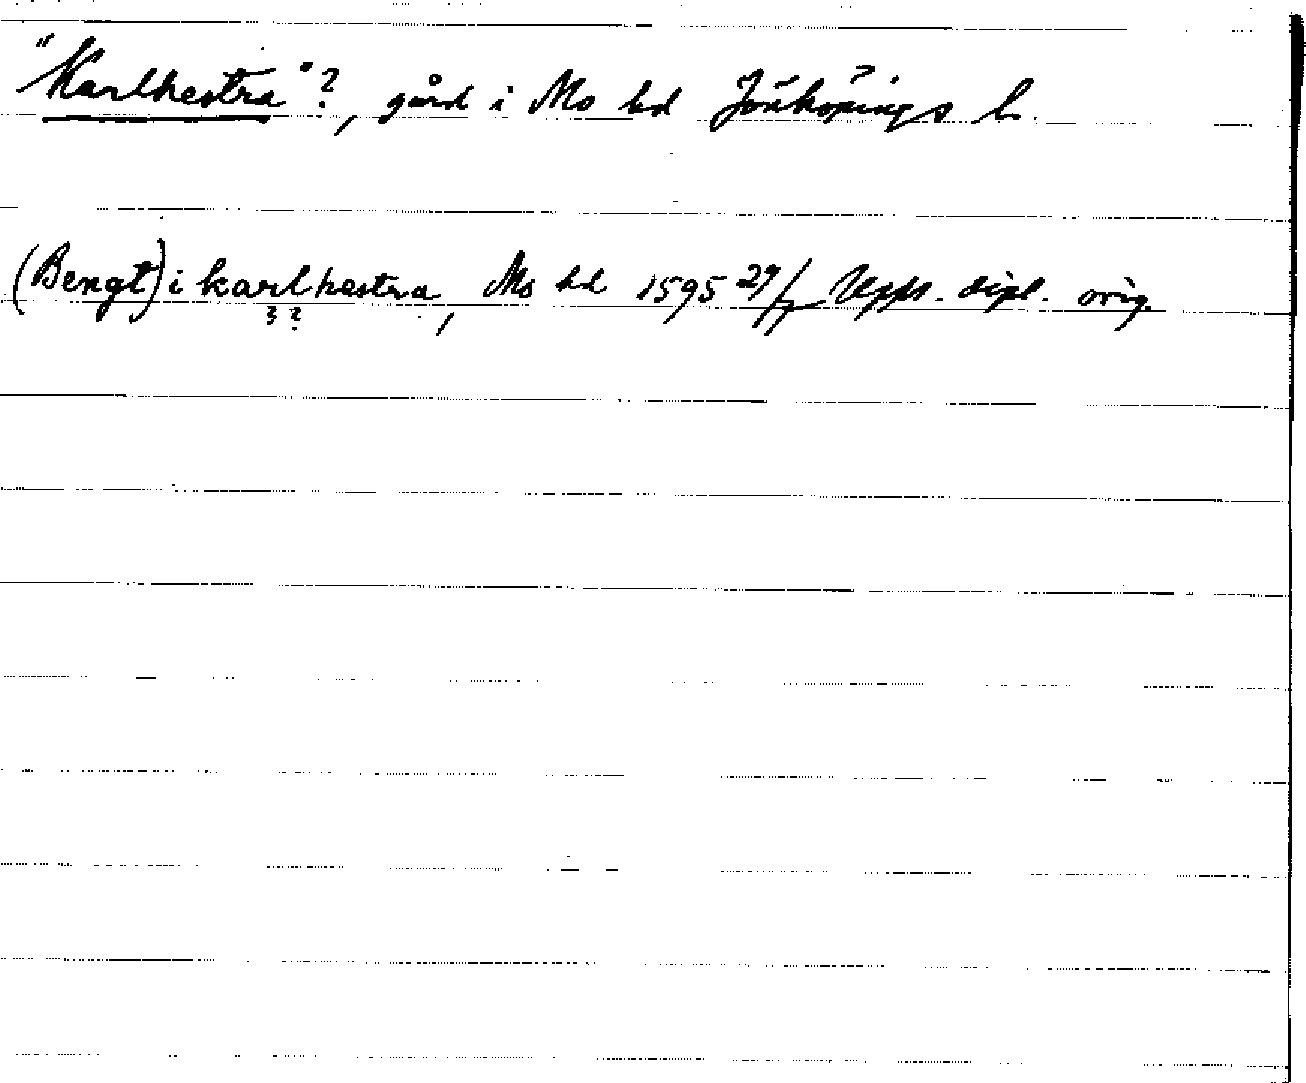 "Karlhestra"?, gård i Mo hd Jönköpings l.
(Bengt) i karlhestra, Mo hd 1595 29/7 Upps. dipl. orig.
? ?